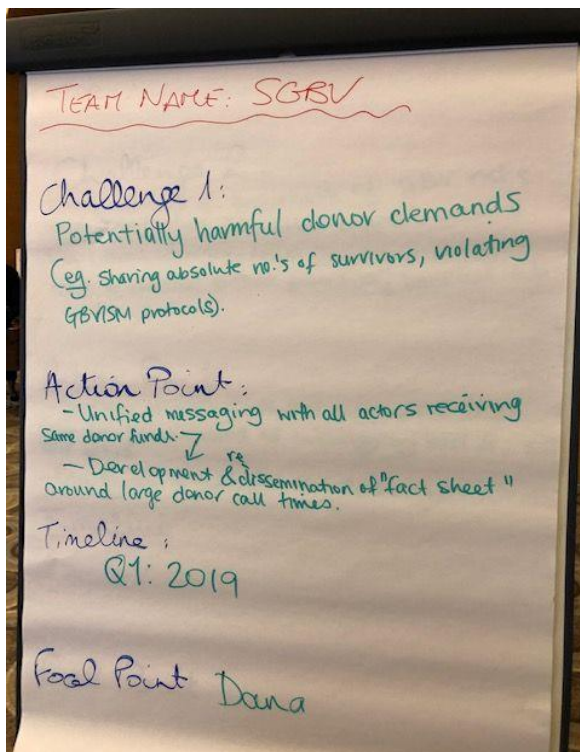 TEAM NAME: SGBV
Challenge 1:
Potentially harmful donor demands
(eg. sharing absolute no.'s of survivors, violating
GBVISM protocols).
Action Point:
- Unified messaging with all actors receiving
same donor funds.
- Development & re dissemination of "fact sheet"
around large donor call times.
Timeline:
Q1: 2019
Focal Point Dana